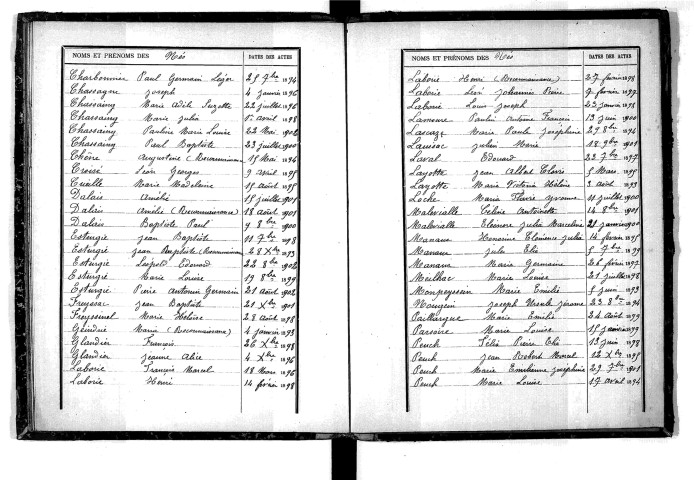 NOMS ET PRÉNOMS DES Nés DATES DES ACTES
Charbonnier Paul Germain Léger 25 7bre 1894
Chassagne Joseph 4 janvier 1896
Chassaing Marie Adèle Suzette 22 juillet 1896
Chassaing Marie Julia 1er avril 1898
Chassaing Pauline Marie Louise 22 Mai 1902
Chassaing Paul Baptiste 23 juillet 1900
Chêne Augustine (Reconnaissance) 15 Mai 1894
Croise Léon Georges 9 avril 1895
Cueille Marie Madeleine 15 août 1895
Dalais Amélie 15 juillet 1901
Dalais Amélie (Reconnaissance) 18 août 1901
Dalais Baptiste Paul 9 8bre 1900
Esturgie Jean Baptiste 11 7bre 1898
Esturgie Jean Baptiste (Reconnaissance) 28 Xbre 1893
Esturgie Léopold Edouard 22 8bre 1902
Esturgie Marie Louise 19 8bre 1899
Esturgie Pierre Antonin Germain 21 août 1902
Freyssac Jean Baptiste 21 Xbre 1901
Freyssinel Marie Héloïse 28 août 1898
Geindre Maria (Reconnaissance) 4 janvier 1893
Glandier François 26 Xbre 1898
Glandier Jeanne Alice 4 Xbre 1896
Laborie François Marcel 18 Mars 1896
Laborie Henri 14 février 1898
NOMS ET PRÉNOMS DES Nés DATES DES ACTES
Laborie Henri (Reconnaissance) 27 février 1898
Laborie Léon Johannie Pierre 9 février 1897
Laborie Louis Joseph 23 janvier 1898
Lameure Paulin Antoine François 13 juin 1900
Lascaze Marie Paule Joséphine 29 8bre 1894
Laussac Julien Marie 18 9bre 1901
Laval Edouard 22 7bre 1897
Layotte Jean Albert Clovis 5 Mars 1895
Layotte Marie Victoria Hélène 3 août 1893
Loche Marie Flavie Yvonne 11 juillet 1900
Malevialle Céline Antoinette 14 8bre 1901
Malevialle Eléonore Julia Marceline 21 janvier 1900
Manaux Honorine Clémence Julia 14 février 1895
Manaux Jules Elie 5 7bre 1899
Manaux Marie Germaine 26 février 1897
Meilhac Marie Louise 21 juillet 1898
Monpeyssin Marie Emilie 5 juin 1893
Nougein Joseph Ursule Jérome 23 8bre 1894
Paillargue Marie Emilie 24 août 1899
Parsoire Marie Louise 15 janvier 1899
Peuch Félix Pierre Elie 13 juin 1898
Peuch Jean Robert Marcel 12 Xbre 1895
Peuch Marie Emilienne Joséphine 29 7bre 1901
Peuch Marie Louise 17 avril 1894